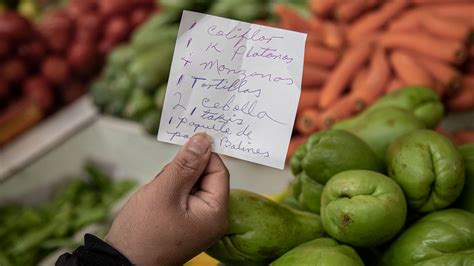 1 Coliflor
1 K Platanos
1 K Manzanas
1 Tortillas
2 Cebolla
1 takis
1 paquete de
Balines